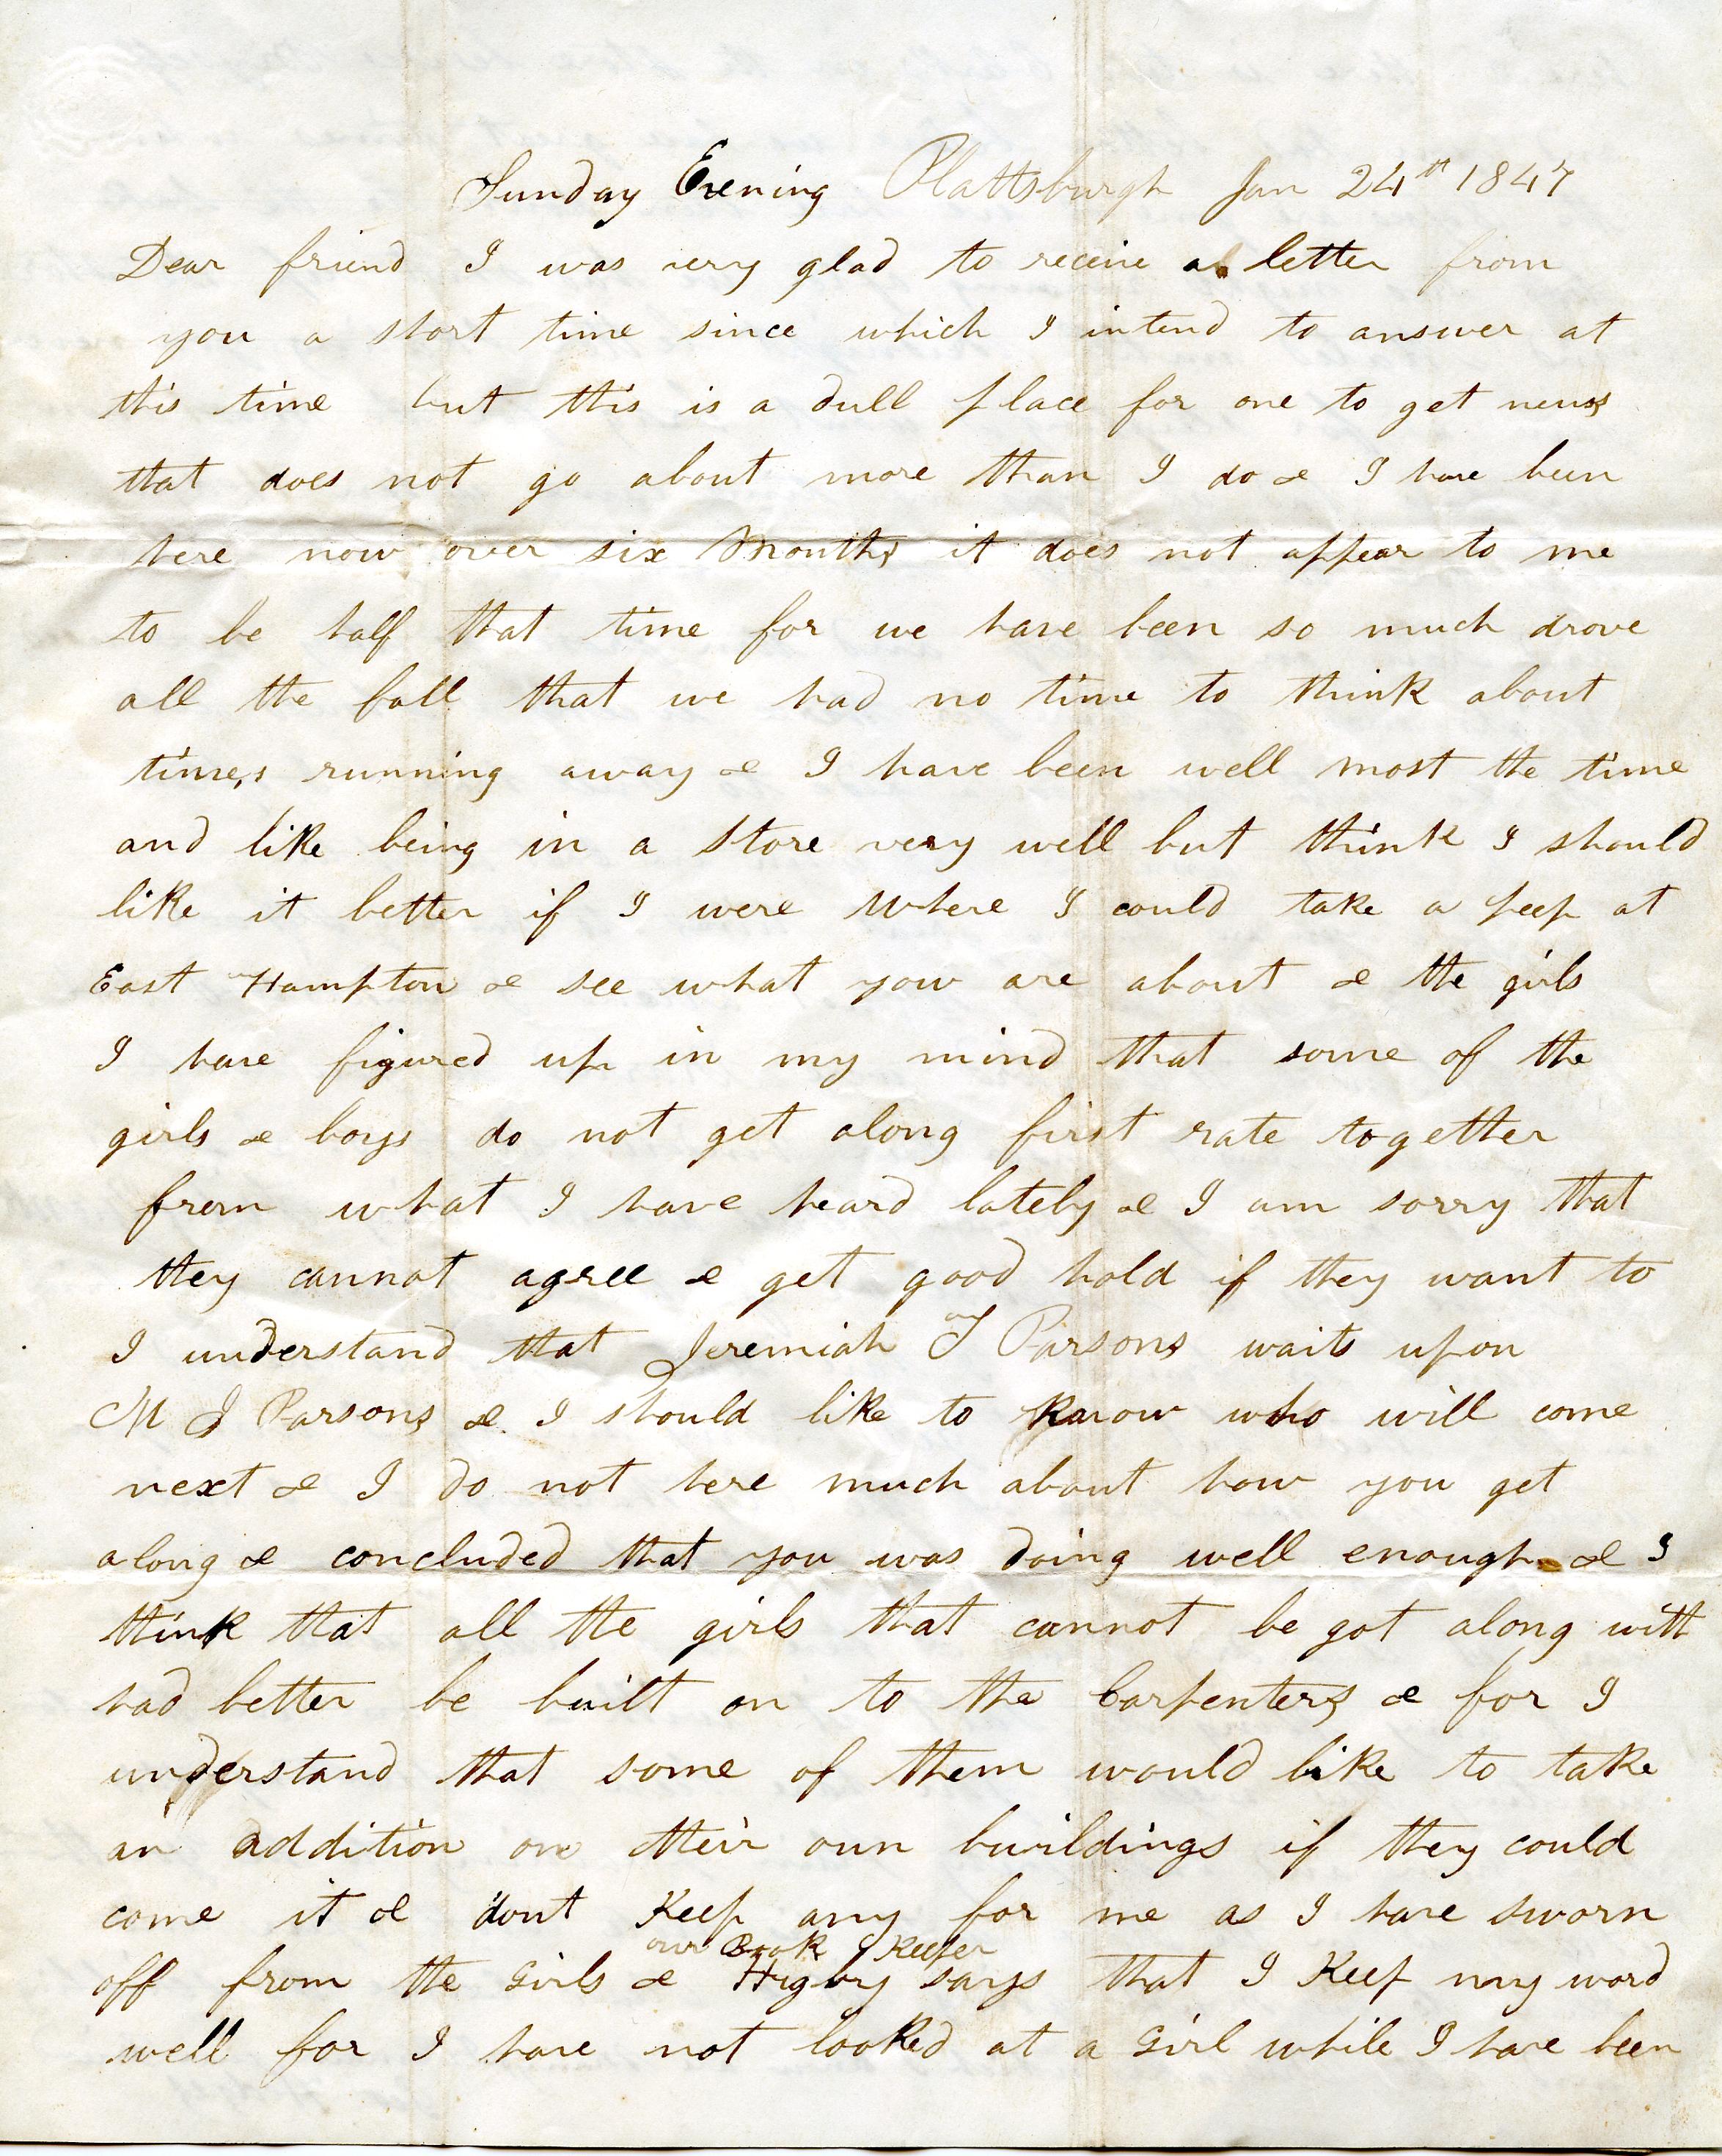 Sunday Evening Plattsburgh Jan 24th 1847
Dear friend I was very glad to receive a letter from
you a short time since which I intend to answer at
this time but this is a dull place for one to get news
that does not go about more than I do & I have been
here now over six Months it does not appear to me
to be half that time for we have been so much drove
all the fall that we had no time to think about
times running away & I have been well most the time
and like being in a Store very well but think I should
like it better if I were Where I could take a peep at
East Hampton & see what you are about & the girls
I have figured up in my mind that some of the
girls & boys do not get along first rate together
from what I have heard lately & I am sorry that
they cannot agree & get good hold if they want to
I understand that Jeremiah T Parsons waits upon
M J Parsons & I should like to know who will come
next & I do not here much about how you get
along & concluded that you was doing well enough & I
think that all the girls that cannot be got along with
had better be built on to the Carpenters & for I
understand that some of them would like to take
an addition on their own buildings if they could
come it & dont Keep any for me as I have sworn
our Book Keeper
off from the Girls & Higby says that I Keep my word
well for I have not looked at a Girl while I have been